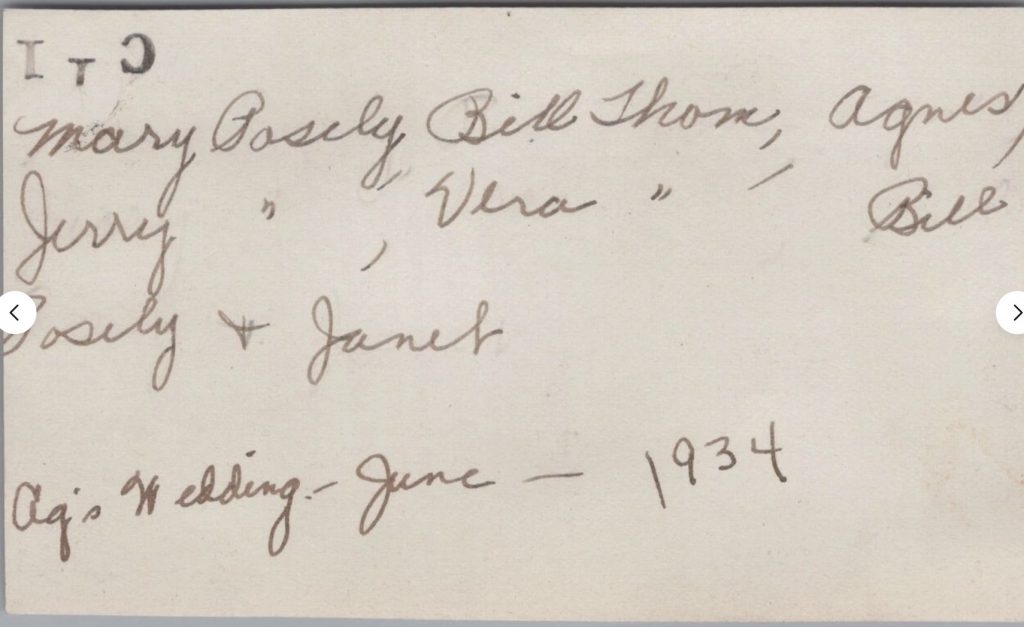 I T C
Mary Posely, Bill Thom, Agnes,
Jerry ", Vera " , Bill
Posely + Janet
Ag's Wedding - June - 1934